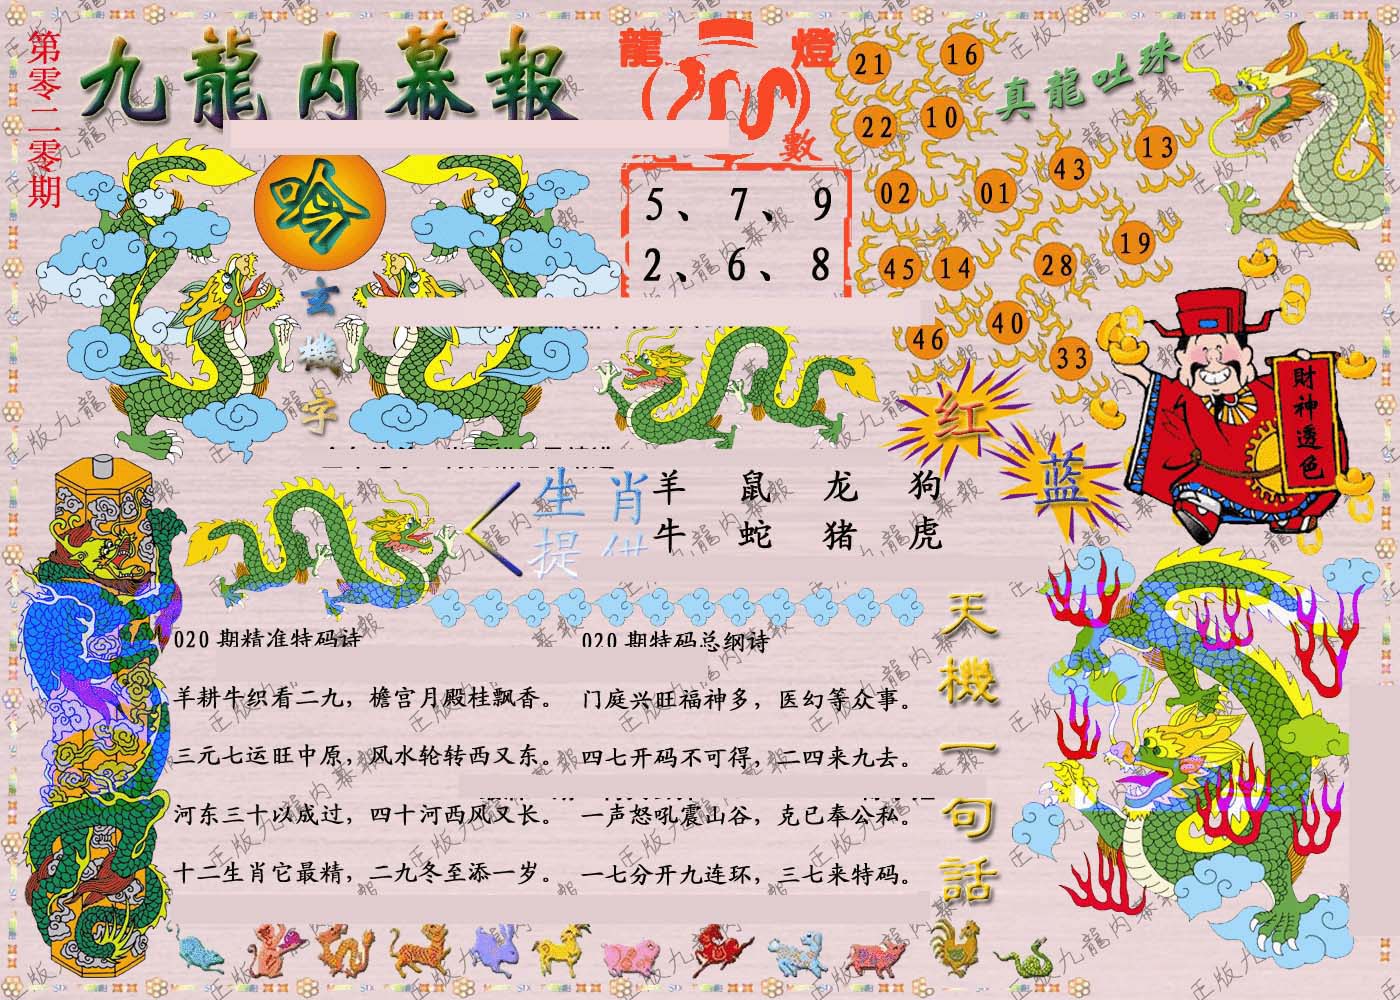 第零二零期
九龍内幕報
龍燈數
5、7、9
2、6、8
真龍吐珠
21 16
22 10
13
43
02 01
19
45 14 28
46 40
33
吟
玄機字
财神透色
红
蓝
生肖
提供
羊 鼠 龙 狗
牛 蛇 猪 虎
020期精准特码诗
羊耕牛织看二九，檐宫月殿桂飘香。
三元七运旺中原，风水轮转西又东。
河东三十以成过，四十河西风又长。
十二生肖它最精，二九冬至添一岁。
020期特码总纲诗
门庭兴旺福神多，医幻等众事。
四七开码不可得，二四来九去。
一声怒吼震山谷，克已奉公私。
一七分开九连环，三七来特码。
天機一句話
正版九龍内幕報